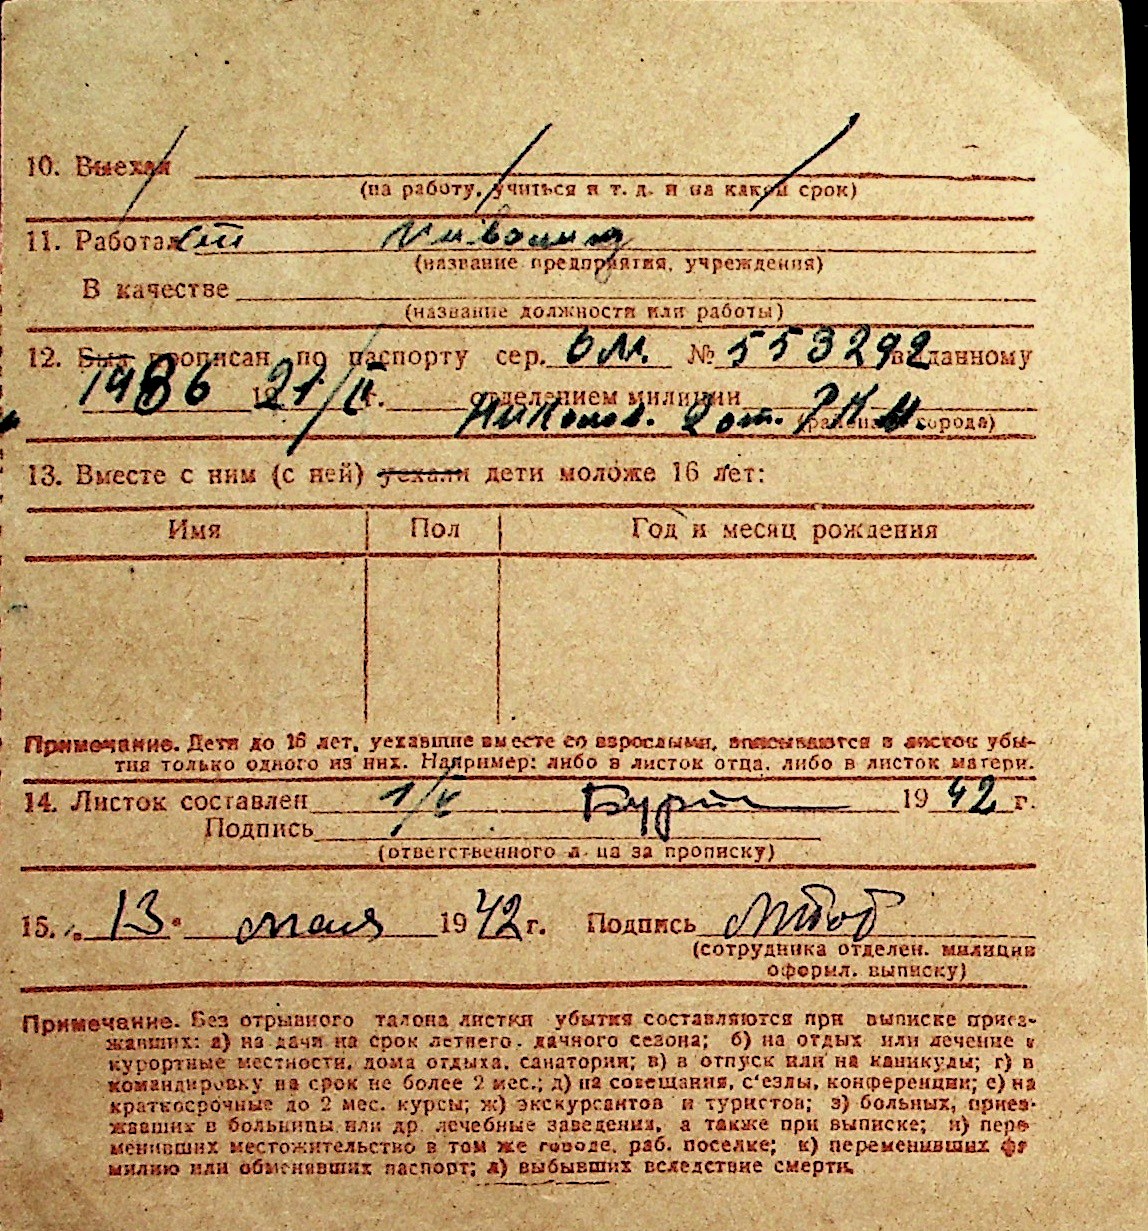 10. Выехал
(на работу, учиться и т. д. и на какой срок)
11. Работал
(название предприятия, учреждения)
В качестве
(название должности или работы)
12. Был прописан по паспорту сер. ОМ. № 553292 выданному
1936 19 27/II г. отделением милиции
Никол. 2 от. РКМ
(района, города)
13. Вместе с ним (с ней) уехали дети моложе 16 лет:
Имя Пол Год и месяц рождения
Примечание. Дети до 16 лет, уехавшие вместе со взрослыми, вписываются в листок убы-
тия только одного из них. Например: либо в листок отца, либо в листок матери.
14. Листок составлен 1/V 19 42 г.
Подпись
(ответственного лица за прописку)
15. „13“ мая 19 42 г. Подпись
(сотрудника отделен. милиции
оформл. выписку)
Примечание. Без отрывного талона листки убытия составляются при выписке приез-
жавших: а) на дачи на срок летнего дачного сезона; б) на отдых или лечение в
курортные местности, дома отдыха, санатории; в) в отпуск или на каникулы; г) в
командировку на срок не более 2 мес.; д) на совещания, с'езды, конференции; е) на
краткосрочные до 2 мес. курсы; ж) экскурсантов и туристов; з) больных, приез-
жавших в больницы или др. лечебные заведения, а также при выписке; и) пере
менивших местожительство в том же городе, раб. поселке; к) переменивших фа
милию или обменявших паспорт; л) выбывших вследствие смерти.